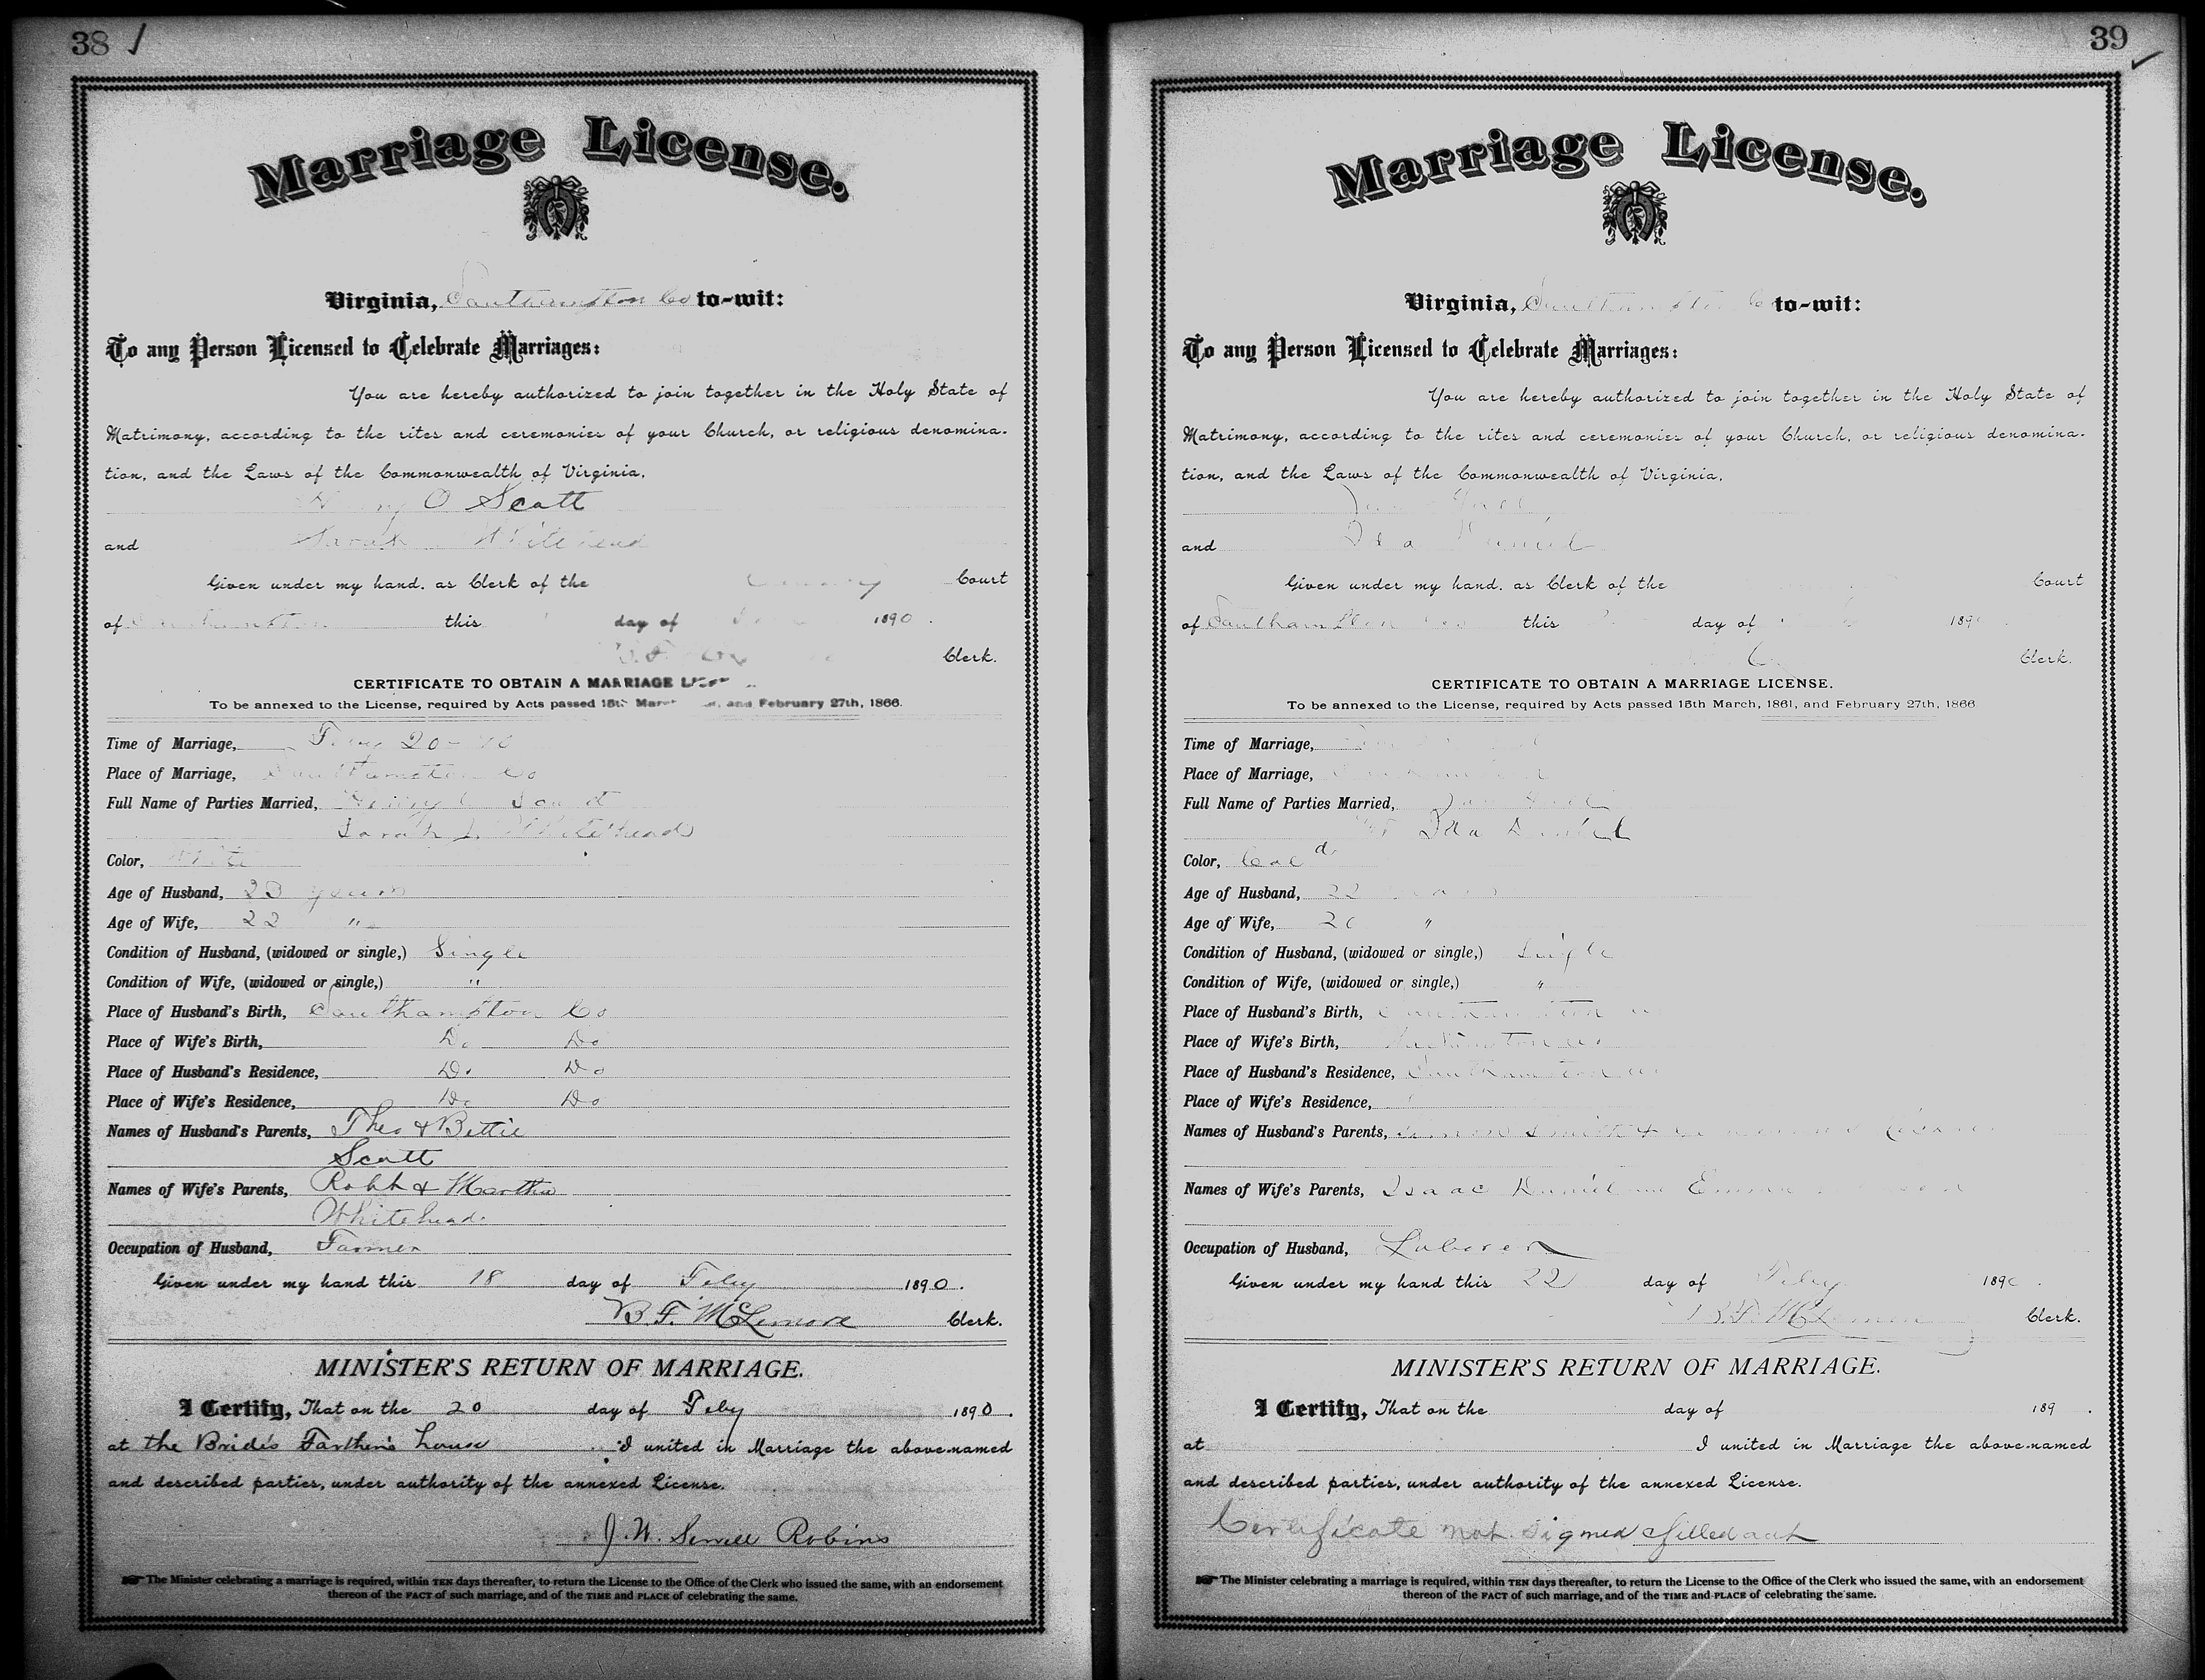 38
Marriage License.
Virginia, Southampton Co to-wit:
To any Person Licensed to Celebrate Marriages:
You are hereby authorized to join together in the Holy State of
Matrimony, according to the rites and ceremonies of your Church, or religious denomina-
tion, and the Laws of the Commonwealth of Virginia,
O Scott
and Sarah Whitehead
Given under my hand, as Clerk of the County Court
of Southampton this day of 1890.
Clerk.
CERTIFICATE TO OBTAIN A MARRIAGE
To be annexed to the License, required by Acts passed 15th and February 27th, 1866.
Time of Marriage, Feby 20-90
Place of Marriage, Southampton Co
Full Name of Parties Married, Henry Scott
Sarah Whitehead
Color, White
Age of Husband, 23 years
Age of Wife, 22 "
Condition of Husband, (widowed or single,) Single
Condition of Wife, (widowed or single,) "
Place of Husband's Birth, Southampton Co
Place of Wife's Birth, Do Do
Place of Husband's Residence, Do Do
Place of Wife's Residence, Do Do
Names of Husband's Parents, Theo & Bettie
Scott
Names of Wife's Parents, Robt & Martha
Whitehead
Occupation of Husband, Farmer
Given under my hand this 18 day of Feby 1890.
B. F. McLemore Clerk.
MINISTER'S RETURN OF MARRIAGE.
I Certify, That on the 20 day of Feby 1890.
at the Bride's Farther's house I united in Marriage the above-named
and described parties, under authority of the annexed License.
J. W. Robins
The Minister celebrating a marriage is required, within TEN days thereafter, to return the License to the Office of the Clerk who issued the same, with an endorsement
thereon of the FACT of such marriage, and of the TIME and PLACE of celebrating the same.
39
Marriage License.
Virginia, Southampton Co to-wit:
To any Person Licensed to Celebrate Marriages:
You are hereby authorized to join together in the Holy State of
Matrimony, according to the rites and ceremonies of your Church, or religious denomina-
tion, and the Laws of the Commonwealth of Virginia,
and Ida Daniel
Given under my hand, as Clerk of the Court
of Southampton Co this day of 189
Clerk.
CERTIFICATE TO OBTAIN A MARRIAGE LICENSE.
To be annexed to the License, required by Acts passed 15th March, 1861, and February 27th, 1866
Time of Marriage,
Place of Marriage,
Full Name of Parties Married,
Ida Daniel
Color, Cold
Age of Husband, 22 years
Age of Wife, "
Condition of Husband, (widowed or single,) Single
Condition of Wife, (widowed or single,) "
Place of Husband's Birth, Southampton Co
Place of Wife's Birth, Southampton Co
Place of Husband's Residence, Southampton Co
Place of Wife's Residence,
Names of Husband's Parents, Smith &
Names of Wife's Parents, Isaac Daniel and Emma
Occupation of Husband, Laborer
Given under my hand this 22 day of Feby 189
B. F. McLemore Clerk.
MINISTER'S RETURN OF MARRIAGE.
I Certify, That on the day of 189 .
at I united in Marriage the above-named
and described parties, under authority of the annexed License.
Certificate not signed filled out
The Minister celebrating a marriage is required, within TEN days thereafter, to return the License to the Office of the Clerk who issued the same, with an endorsement
thereon of the FACT of such marriage, and of the TIME and PLACE of celebrating the same.